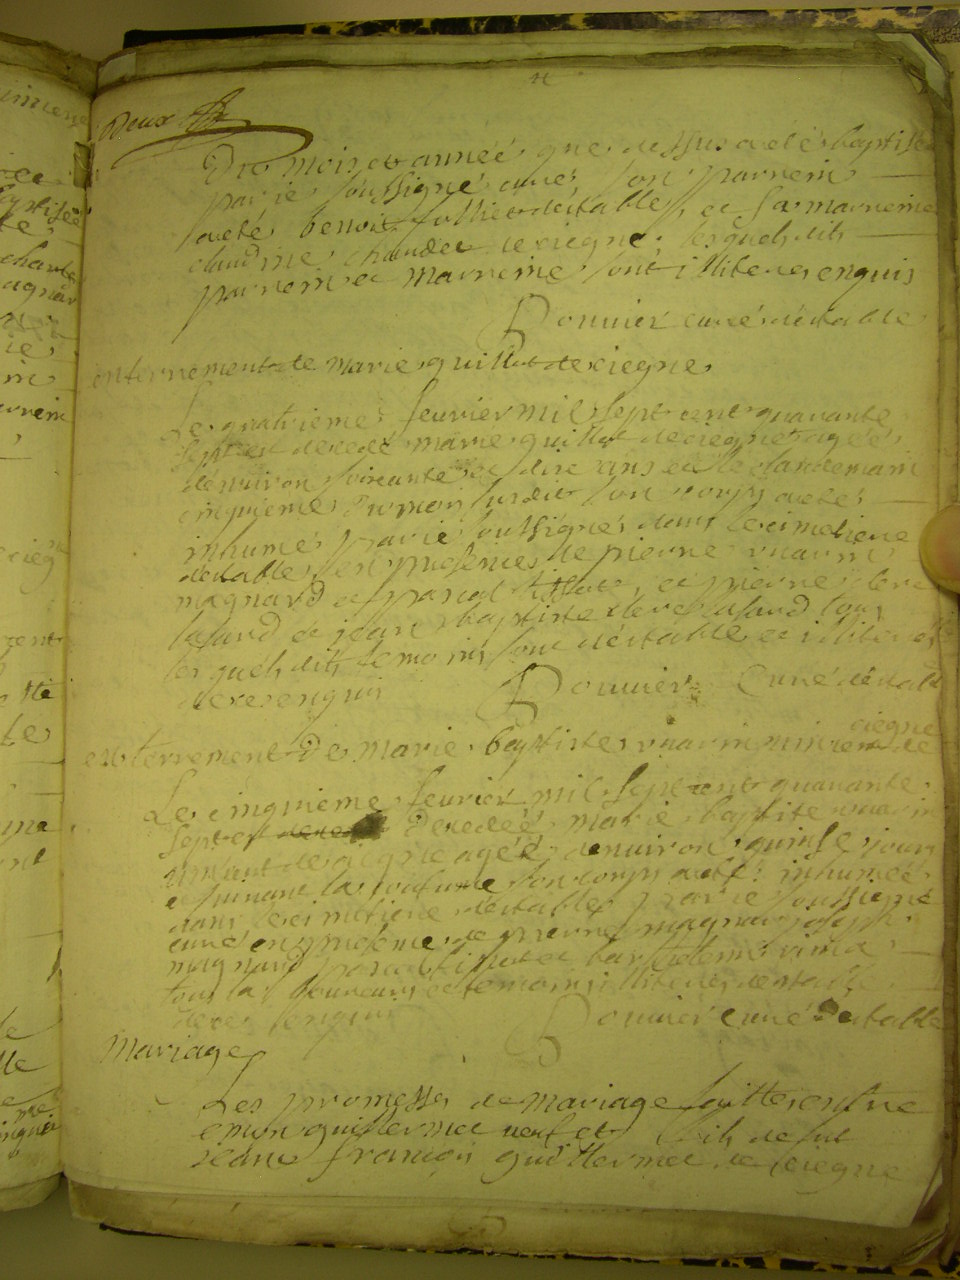 Deux
Du mois et année que dessus a eté baptisée
par je soussigné curé son parrein
a eté benoit follliet destable, et sa marreine
claudine chaudet de ciegne lesquels dits
parrein et marreine sont illiteres enquis
Bouvier curé destable
enterrement de marie quillot de ciegne
Le quatrieme feuvrier mil sept cent quarante
sept est decedé marie quillot de ciegne agée
denuiron soixante et dix ans et le landemain
cinquieme du mois susdit son corps a eté
inhumé par je soussigné dans le cimetiere
destable, en presence de pierre vuarin
magnard et pascal et pierre clere
lafard et jean baptiste clere lafard tous
lesquels dits temoins sont destable et illiteres
de ce enquis Bouvier Curé destable
ciegne
enterrement De marie baptiste vuarin de
Le cinquieme feurier mil sept cent quarante
sept est decedée marie baptiste vuarin
de ciegne agée denuiron quinse jours
et suivant la coutume son corps a eté inhumée
dans le cimetiere destable par je soussigné
curé en presence de pierre magnard joseph
magnard pascal et bartelemi
tous laboureurs et temoins illiteres destable
de ce enquis Bouvier curé Destable
Mariage
Les promesses de mariage faittes entre
guillermet veuf et fils de fut
jean françois guillermet de ciegne